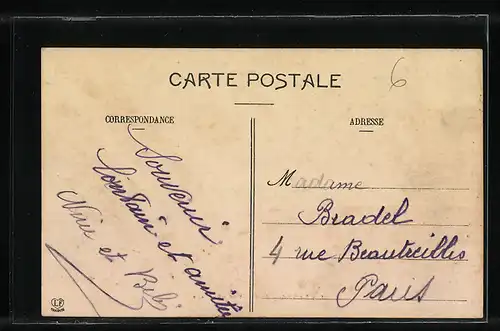 CARTE POSTALE
6
CORRESPONDANCE
ADRESSE
Souvenir
lointain et amitiés
et Bebi
Madame
Bradel
4 rue Beautreillis
Paris